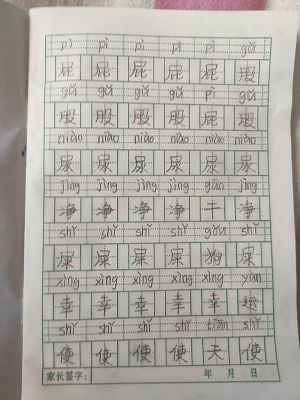 pì pì pì pì pì gǔ
屁 屁 屁 屁 屁 股
gǔ gǔ gǔ gǔ pì gǔ
股 股 股 股 屁 股
niào niào niào niào niào niào
尿 尿 尿 尿 尿 尿
jìng jìng jìng jìng gān jìng
净 净 净 净 干 净
shǐ shǐ shǐ shǐ gǒu shǐ
屎 屎 屎 屎 狗 屎
xìng xìng xìng xìng xìng yùn
幸 幸 幸 幸 幸 运
shǐ shǐ shǐ shǐ tiān shǐ
使 使 使 使 天 使
家长签字: 年 月 日